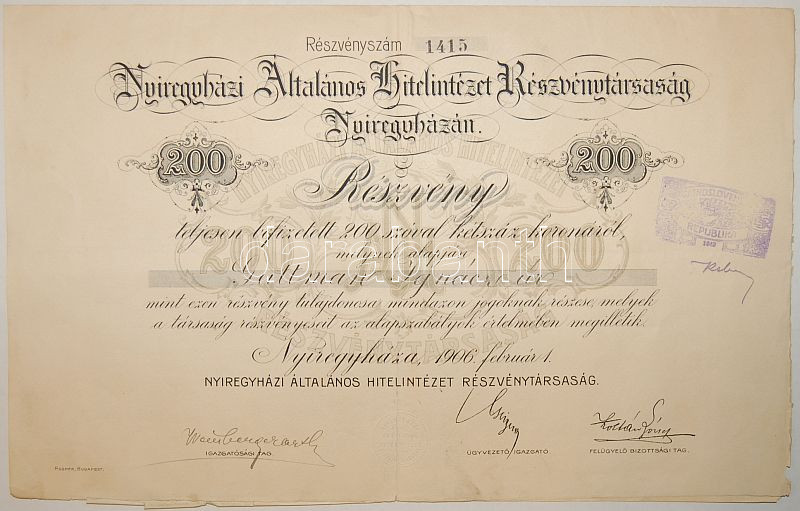 Részvényszám 1415
Nyiregyházi Általános Hitelintézet Részvénytársaság
Nyiregyházán.
200 200
Részvény
teljesen befizetett 200 szóval kétszáz koronáról,
melynek alapján
Gallman Ignácz úr
mint ezen részvény tulajdonosa mindazon jogoknak részese, melyek
a társaság részvényeseit az alapszabályok értelmében megilletik.
Nyiregyháza, 1906. február 1.
NYIREGYHÁZI ÁLTALÁNOS HITELINTÉZET RÉSZVÉNYTÁRSASÁG.
IGAZGATÓSÁGI TAG.
ÜGYVEZETŐ IGAZGATÓ
FELÜGYELŐ BIZOTTSÁGI TAG.
BUDAPEST.
REPUBLIKA
darabanth